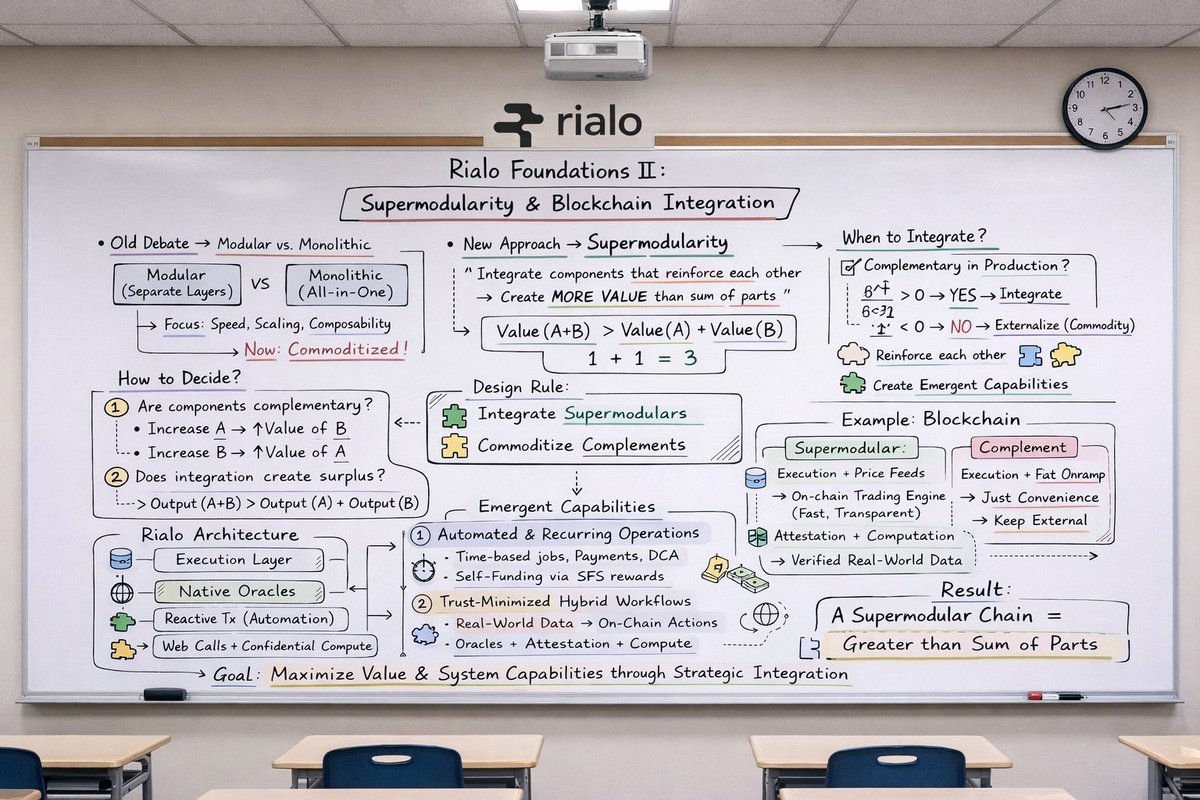 rialo
12
11
1
10
2
9
3
8
4
7
5
6
Rialo Foundations II:
Supermodularity & Blockchain Integration
• Old Debate → Modular vs. Monolithic
Modular
(Separate Layers)
VS
Monolithic
(All-in-One)
→ Focus: Speed, Scaling, Composability
→ Now: Commoditized!
• New Approach → Supermodularity
"Integrate components that reinforce each other
→ Create MORE VALUE than sum of parts"
Value (A+B) > Value (A) + Value (B)
1 + 1 = 3
When to Integrate?
Complementary in Production?
> 0 → YES → Integrate
< 0 → NO → Externalize (Commodity)
Reinforce each other
Create Emergent Capabilities
How to Decide?
1 Are components complementary?
• Increase A → ↑Value of B
• Increase B → ↑Value of A
2 Does integration create surplus?
> Output (A+B) > Output (A) + Output (B)
Design Rule:
Integrate Supermodulars
Commoditize Complements
Example: Blockchain
Supermodular:
Execution + Price Feeds
→ On-chain Trading Engine
(Fast, Transparent)
Attestation + Computation
→ Verified Real-World Data
Complement
Execution + Fat Onramp
→ Just Convenience
→ Keep External
Rialo Architecture
Execution Layer
Native Oracles
Reactive Tx (Automation)
Web Calls + Confidential Compute
Emergent Capabilities
1 Automated & Recurring Operations
• Time-based jobs, Payments, DCA
• Self-Funding via SFS rewards
2 Trust-Minimized Hybrid Workflows
• Real-World Data → On-Chain Actions
• Oracles + Attestation + Compute
Result:
A Supermodular Chain =
Greater than Sum of Parts
→ Goal: Maximize Value & System Capabilities through Strategic Integration